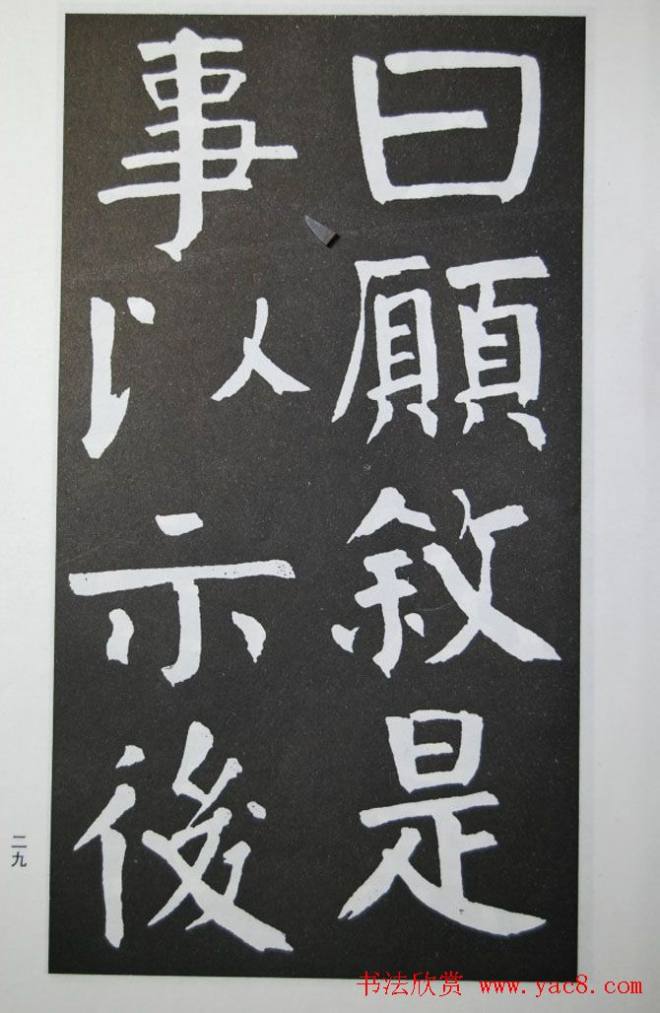 曰願敘是
事以示後
二九
书法欣赏 www.yac8.com